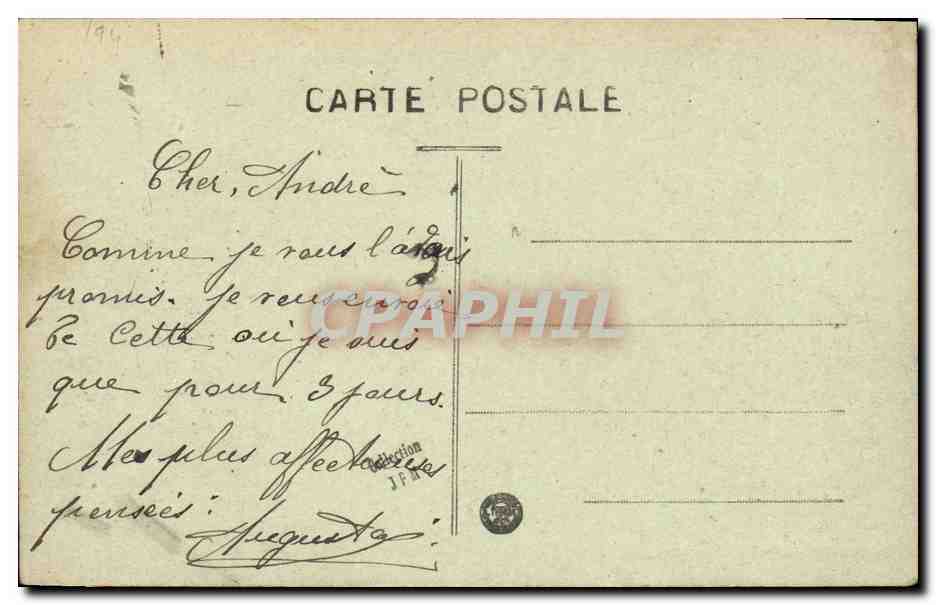 194
CARTE POSTALE
Cher, André
Comme je vous l'avais
promis. je vous envoie
De Cette où je suis
que pour 3 jours.
Mes plus affectueuses
pensées:
Augusta.
Collection
J F M
CPAPHIL